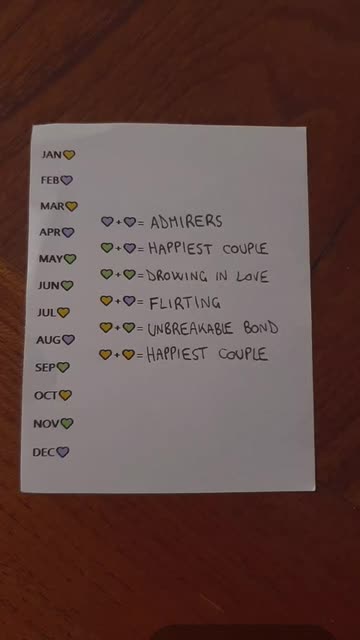 JAN💛
FEB💜
MAR💛
APR💜
MAY💚
JUN💚
JUL💛
AUG💜
SEP💚
OCT💛
NOV💚
DEC💜
💜+💜= ADMIRERS
💚+💜= HAPPIEST COUPLE
💚+💚= DROWING IN LOVE
💛+💜= FLIRTING
💛+💚= UNBREAKABLE BOND
💛+💛= HAPPIEST COUPLE